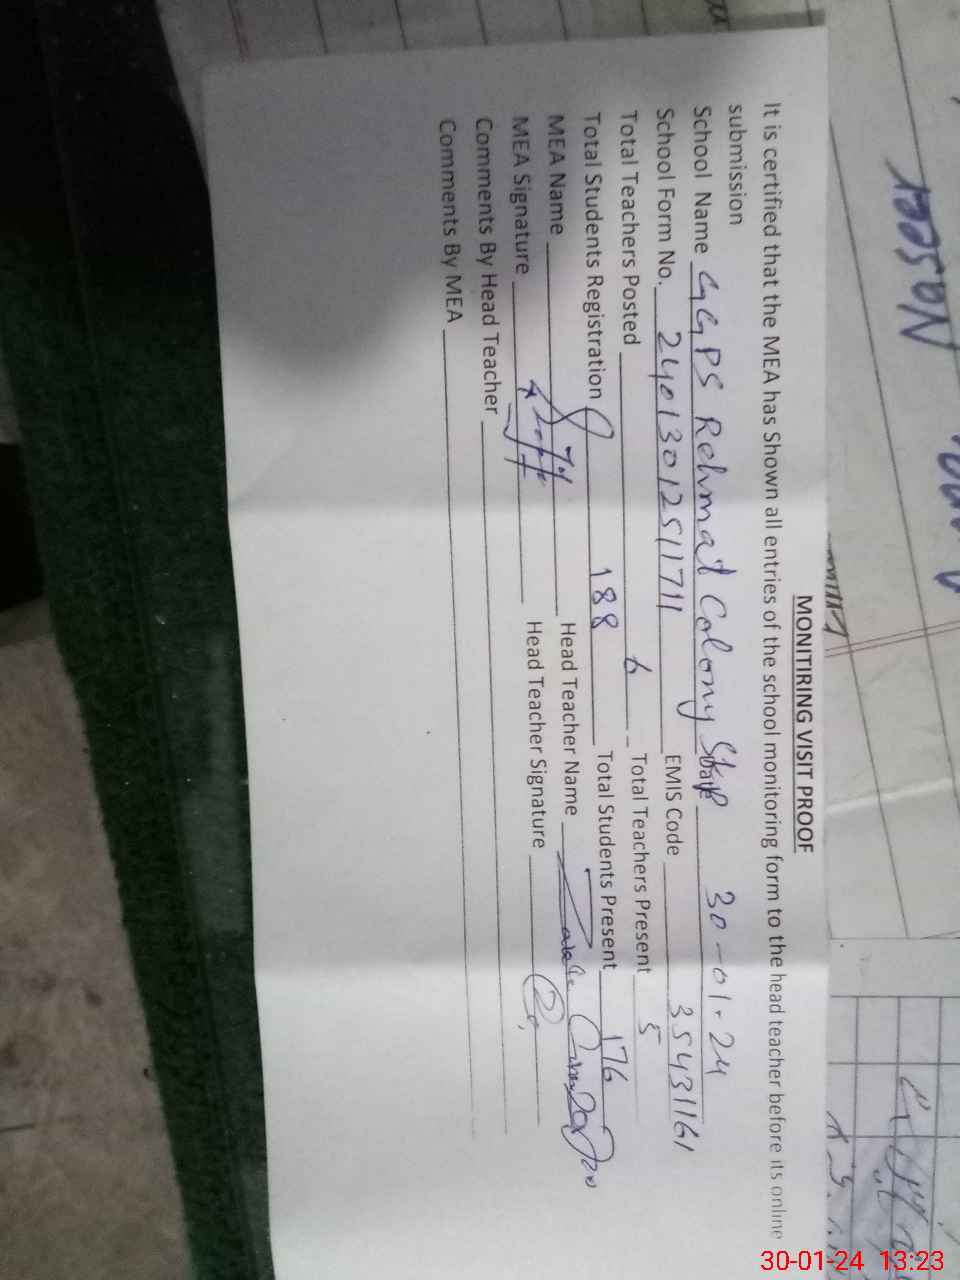 MONITIRING VISIT PROOF
It is certified that the MEA has Shown all entries of the school monitoring form to the head teacher before its online
submission
School Name GGPS Rehmat Colony Skp Date 30-01-24
School Form No. 2401301251171 EMIS Code 35431161
Total Teachers Posted 6 Total Teachers Present 5
Total Students Registration 188 Total Students Present 176
MEA Name Head Teacher Name
MEA Signature Head Teacher Signature
Comments By Head Teacher
Comments By MEA
Naseer
30-01-24 13:23